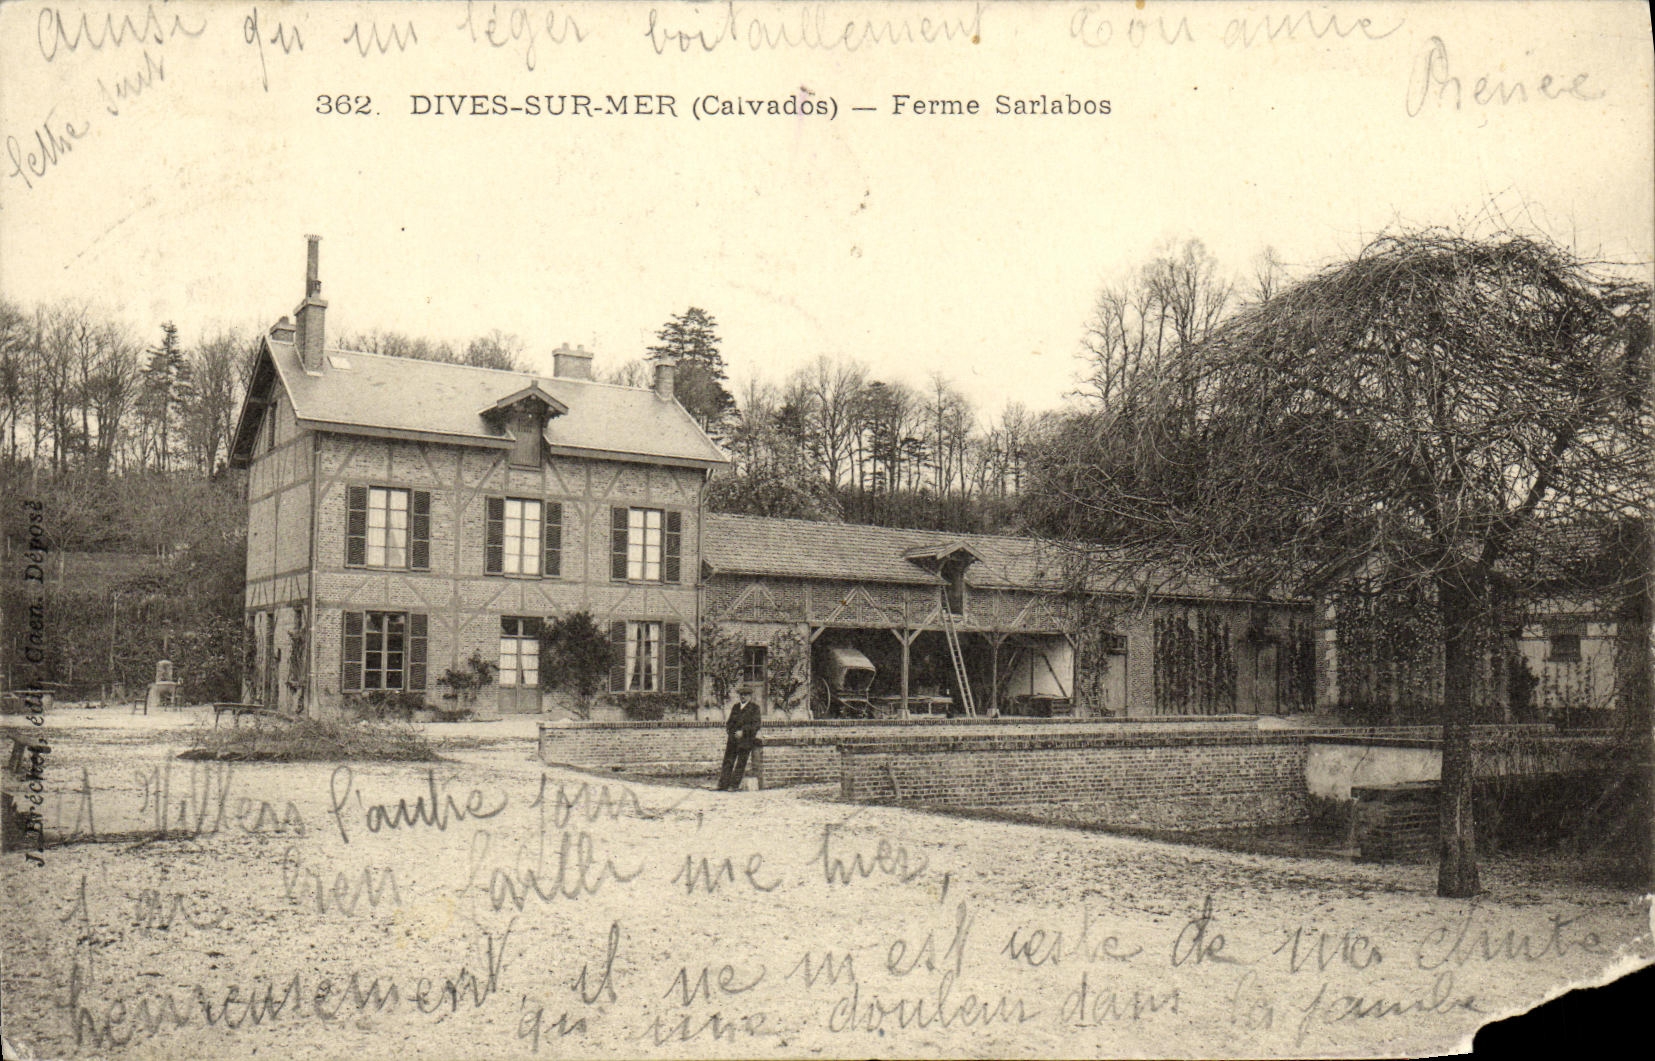 ainsi qu'un léger boitaillement. Ton amie
Renée
lettre suit
362. DIVES-SUR-MER (Calvados) — Ferme Sarlabos
J. Bréchet, édit. Caen. Déposé
A Villers l'autre jour,
j'ai bien failli me tuer,
heureusement, il ne m'est resté de ma chute
qu'une douleur dans la jambe